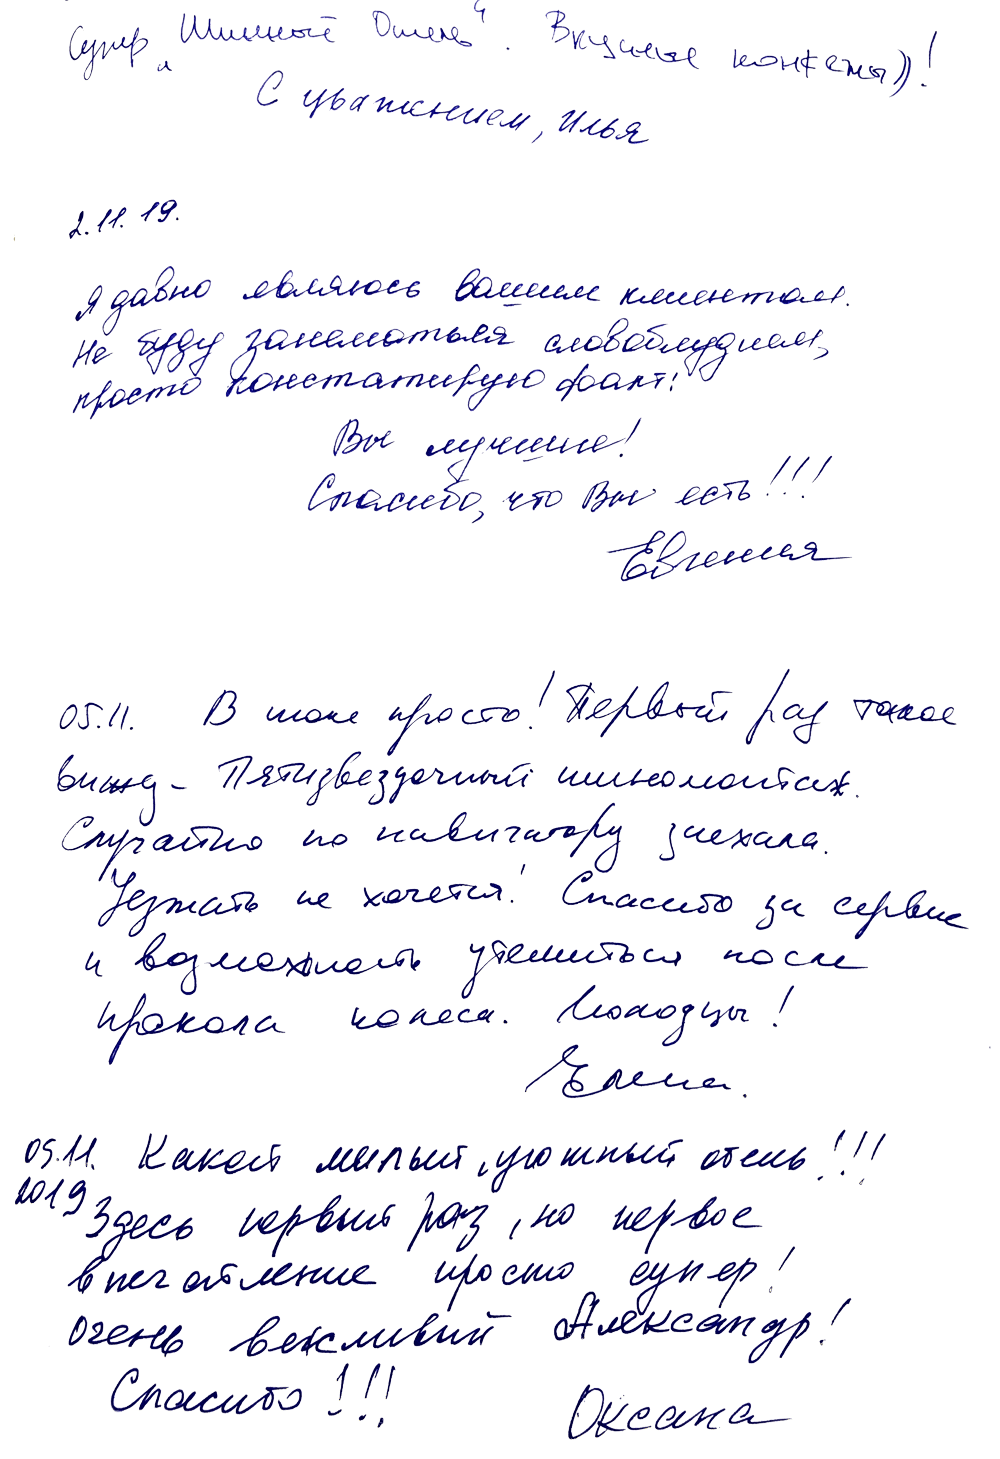 Супер „Шинный Отель“. Вкусные конфеты))!
С уважением, Илья
2.11.19.
Я давно являюсь вашим клиентом.
Не буду заниматься словоблудием,
просто констатирую факт:
Вы лучшие!
Спасибо, что Вы есть!!!
Евгения
05.11. В шоке просто! Первый раз такое
вижу - Пятизвездочный шиномонтаж.
Случайно по навигатору заехала.
Уезжать не хочется! Спасибо за сервис
и возможность утешиться после
прокола колеса. Молодцы!
Елена.
05.11. Какой милый, уютный отель!!!
2019 Здесь первый раз, но первое
впечатление просто супер!
Очень вежливый Александр!
Спасибо!!!
Оксана